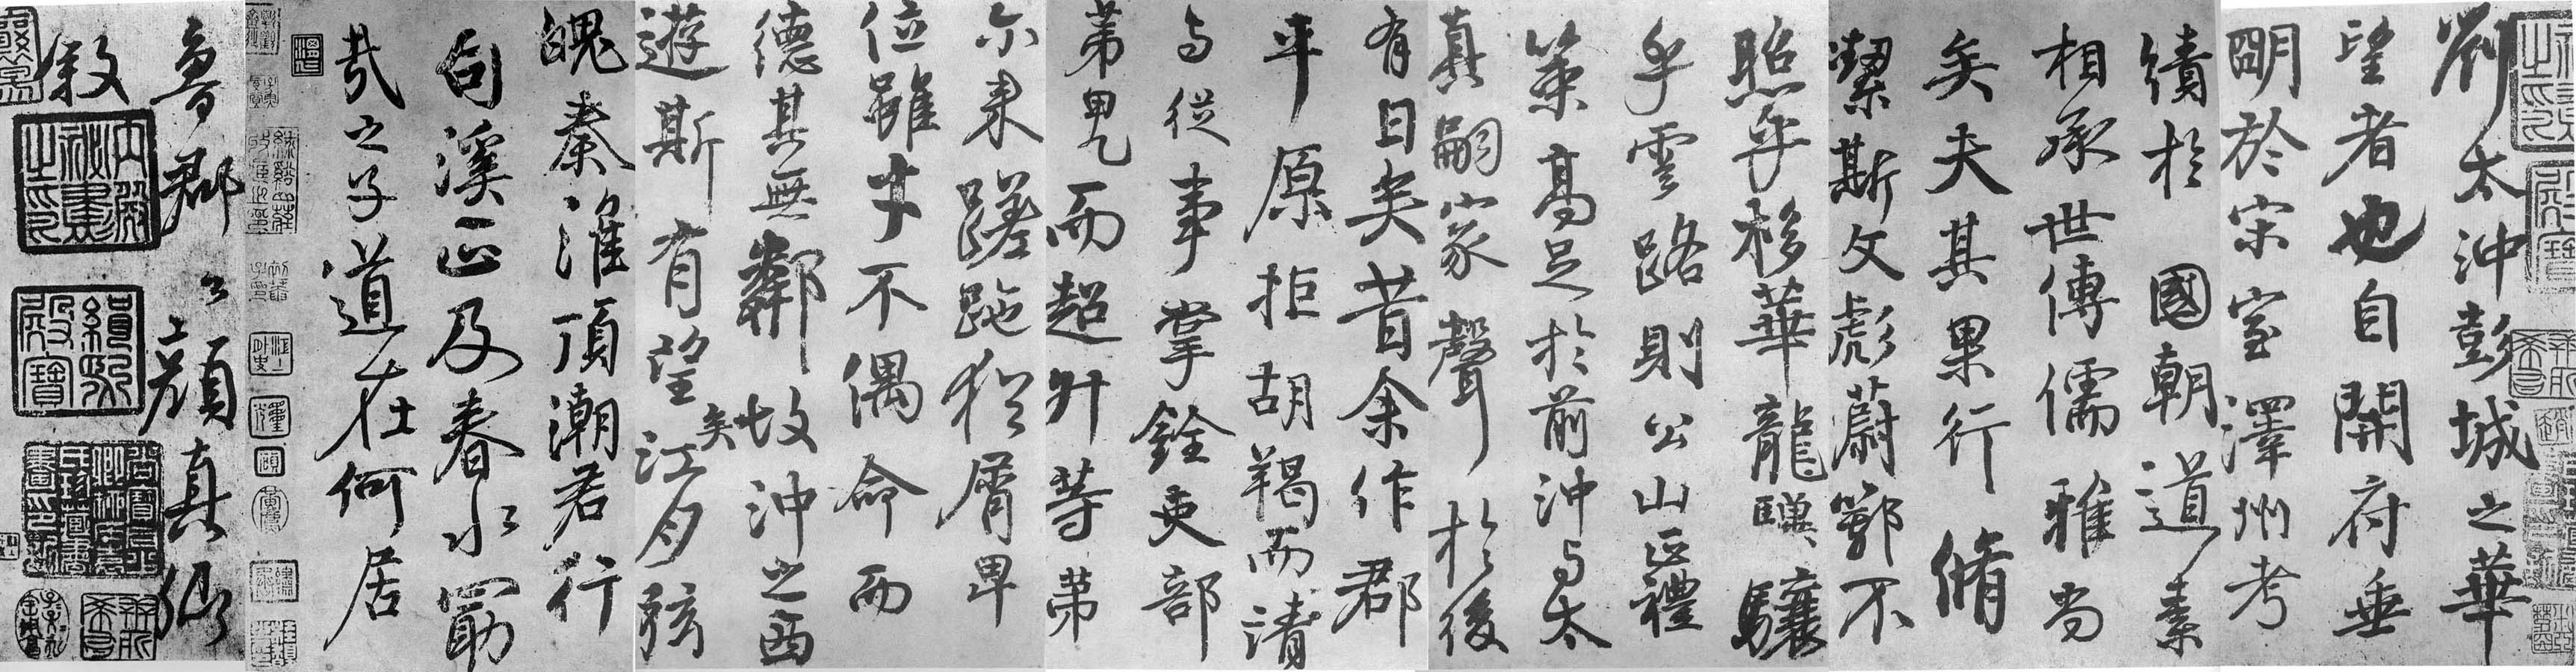 劉太沖彭城之華
望者也自開府垂
明於宋室澤州考
績於國朝道素
相承世傳儒雅尚
矣夫其果行脩
絜斯文彪蔚鄂不
照乎移華龍驥驤
乎雲路則公山正禮
策高足於前沖与太
真嗣家聲於後
有日矣昔余作郡
平原拒胡羯而請
与從事掌銓吏部
第甲而超升等第
尓来蹉跎猶屑卑
位雖才不偶命而
德其無鄰故沖之西
遊斯有望矣江月弦
魄秦淮頂潮君行
句溪正及春水勖
哉之子道在何居
魯郡公顏真卿
叙
內殿秘書之印
緝熙殿寶